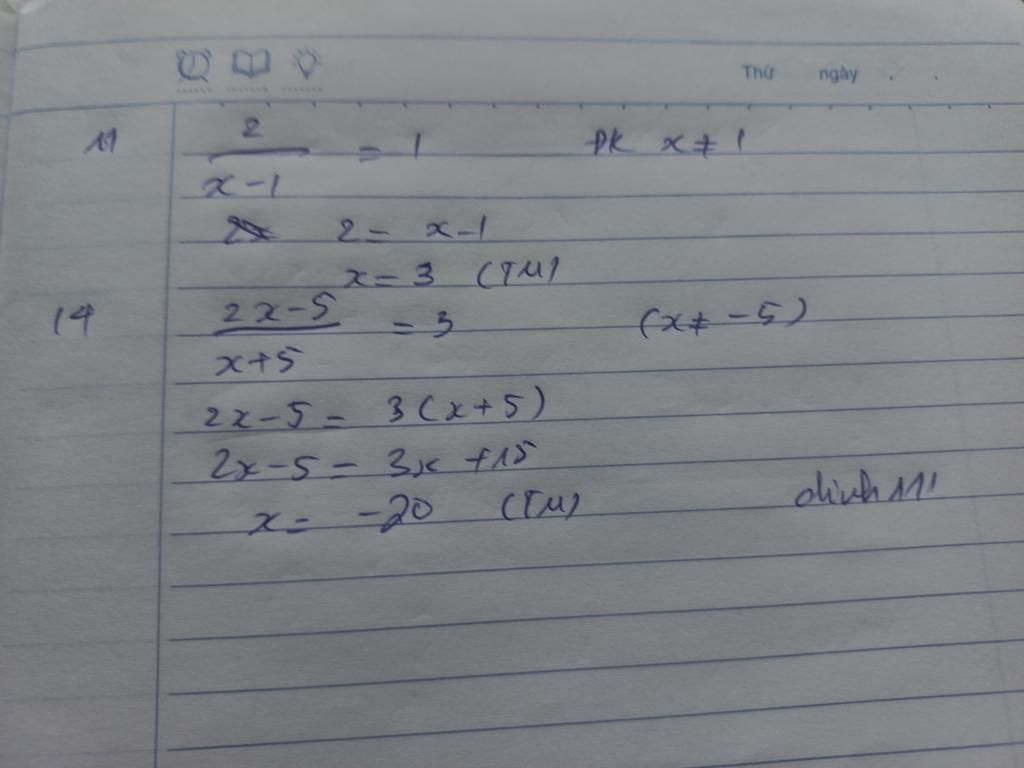 Thứ ngày . .
11 2/(x-1) = 1 ĐK x ≠ 1
2 = x-1
x = 3 (TM)
14 (2x-5)/(x+5) = 3 (x ≠ -5)
2x-5 = 3(x+5)
2x-5 = 3x +15
x = -20 (TM)